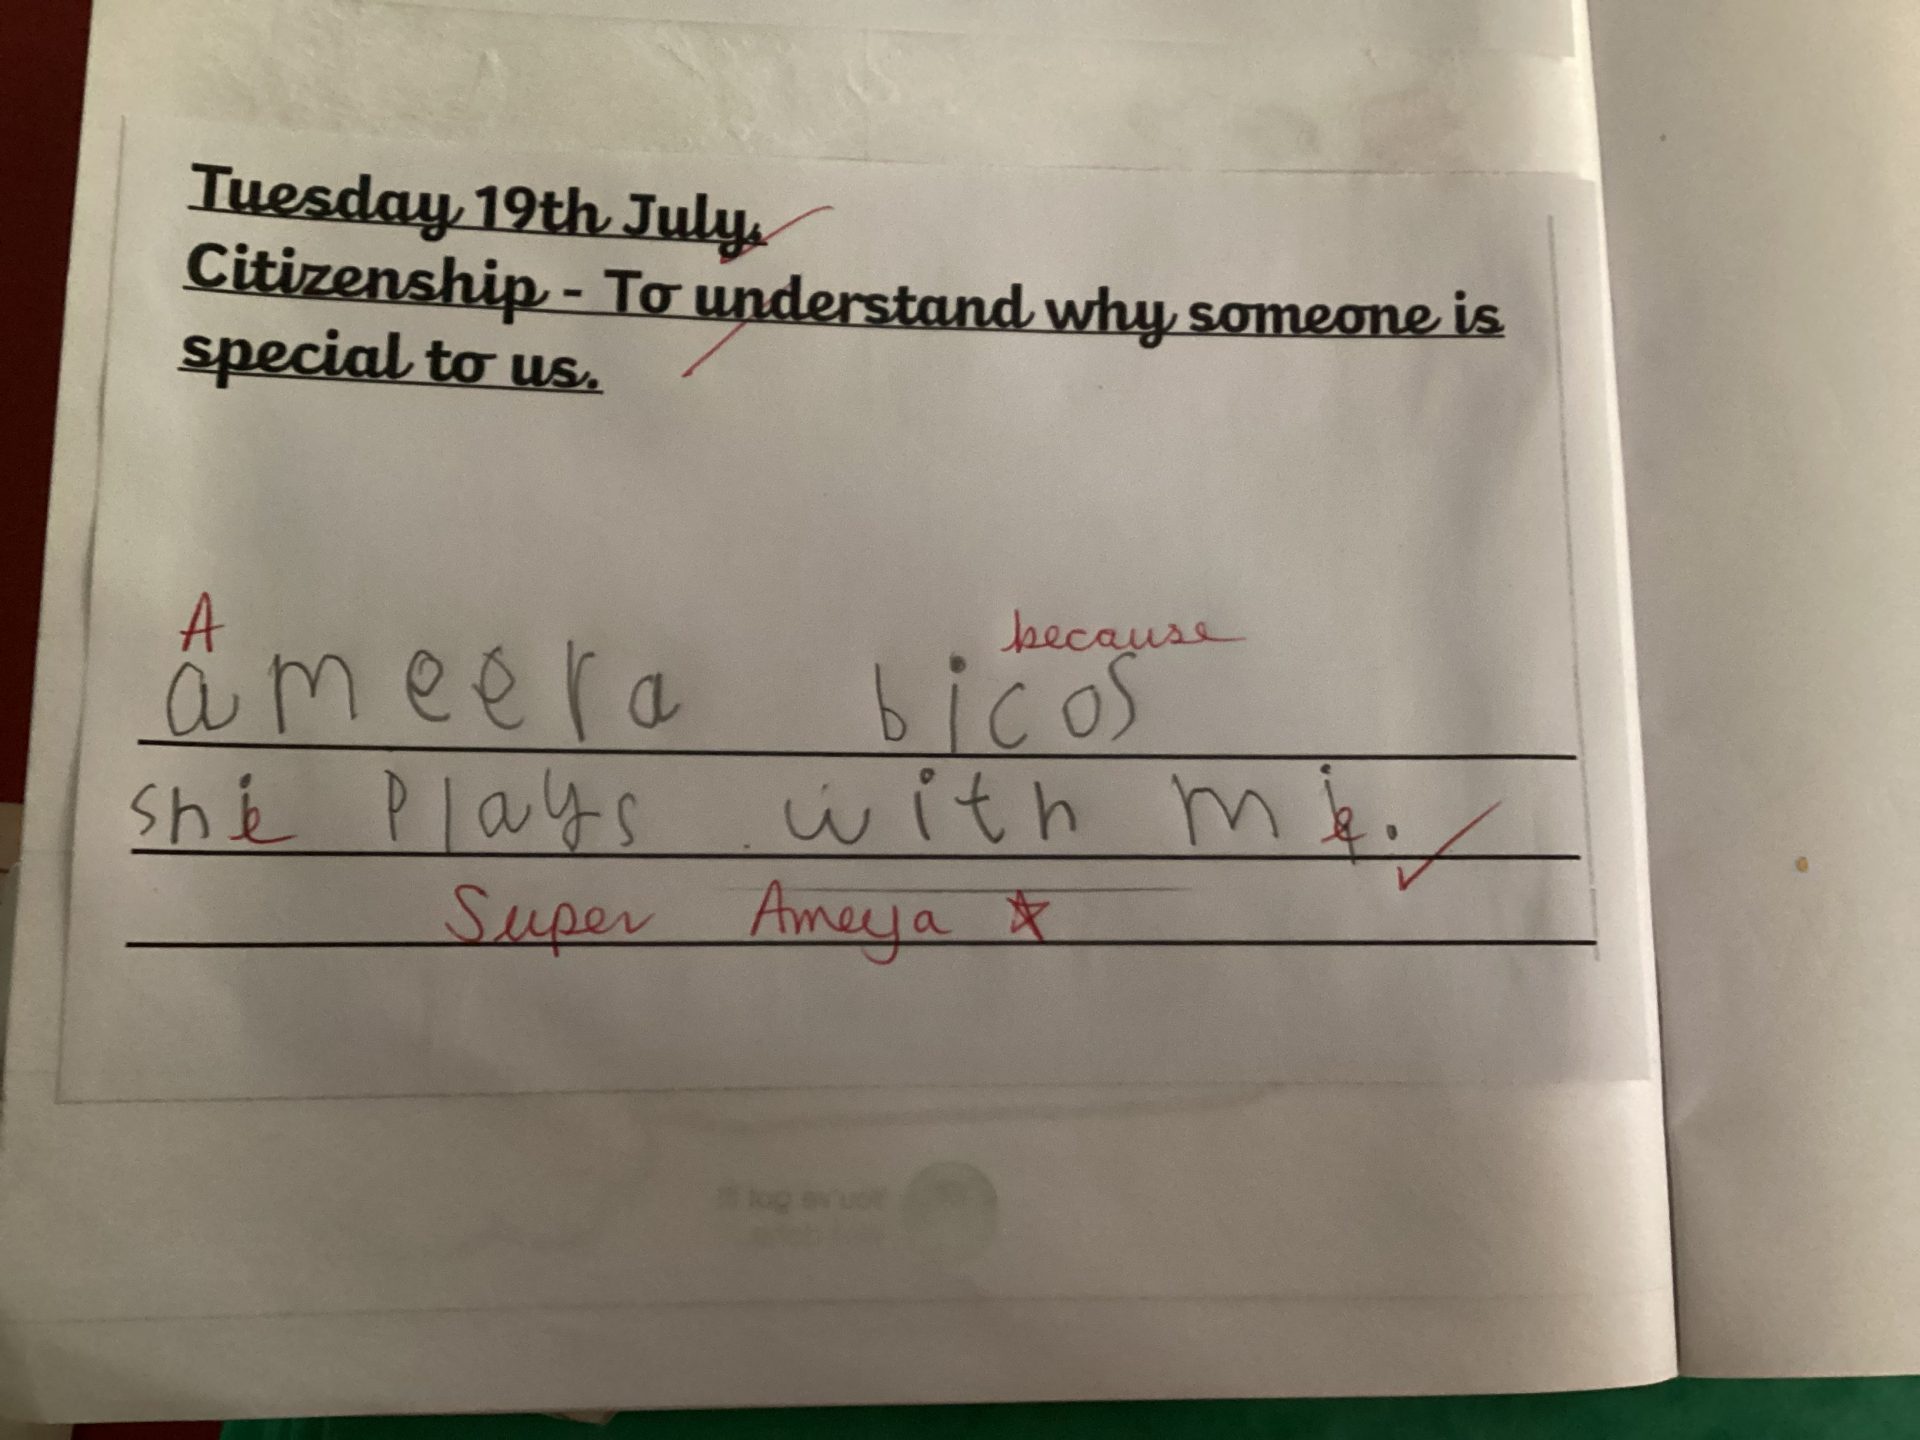 Tuesday 19th July.
Citizenship - To understand why someone is
special to us.
A because
ameera bicos
she plays with me.
Super Ameya